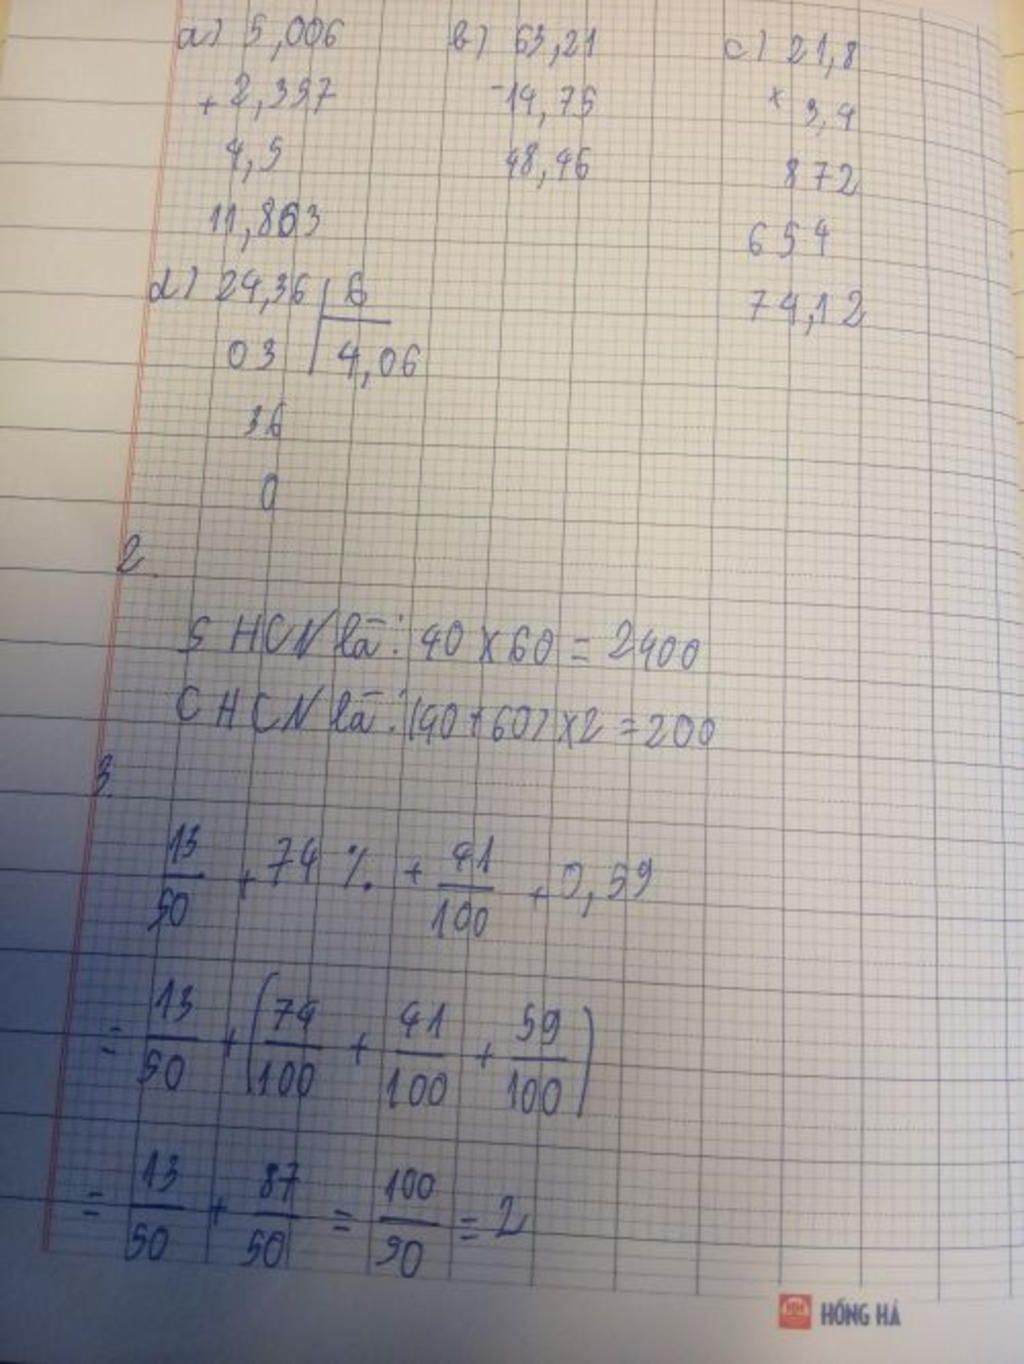 a) 5,006 b) 63,21 c) 21,8
+ 2,357 - 14,75 x 3,4
4,5 48,46 872
11,863 654
d) 24,36 6 74,12
03 4,06
36
0
2.
S HCN là: 40 x 60 = 2400
C HCN là: (40 + 60) x 2 = 200
3.
13/50 + 74 % + 41/100 + 0,59
= 13/50 + (74/100 + 41/100 + 59/100)
= 13/50 + 87/50 = 100/50 = 2
HH HỒNG HÀ